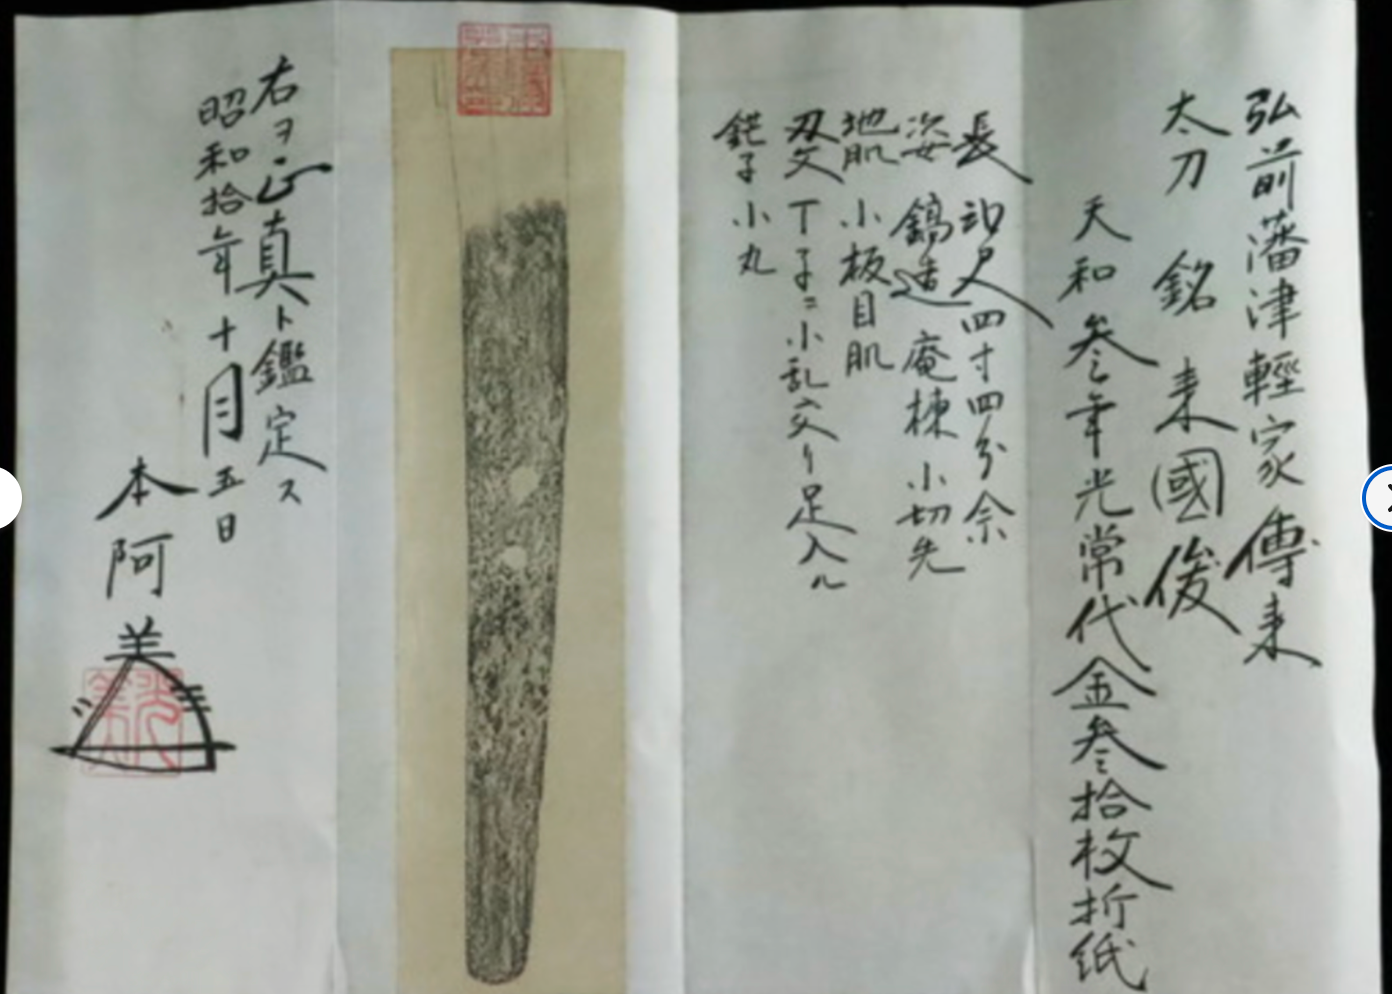 弘前藩津輕家傳来
太刀 銘 来國俊
天和叄年光常代金叄拾枚折紙
長 弐尺四寸四分余
姿 鎬造 庵棟 小切先
地肌 小板目肌
刃文 丁子ニ小乱交リ足入ル
鋩子 小丸
右ヲ正真ト鑑定ス
昭和拾年十月五日
本阿美